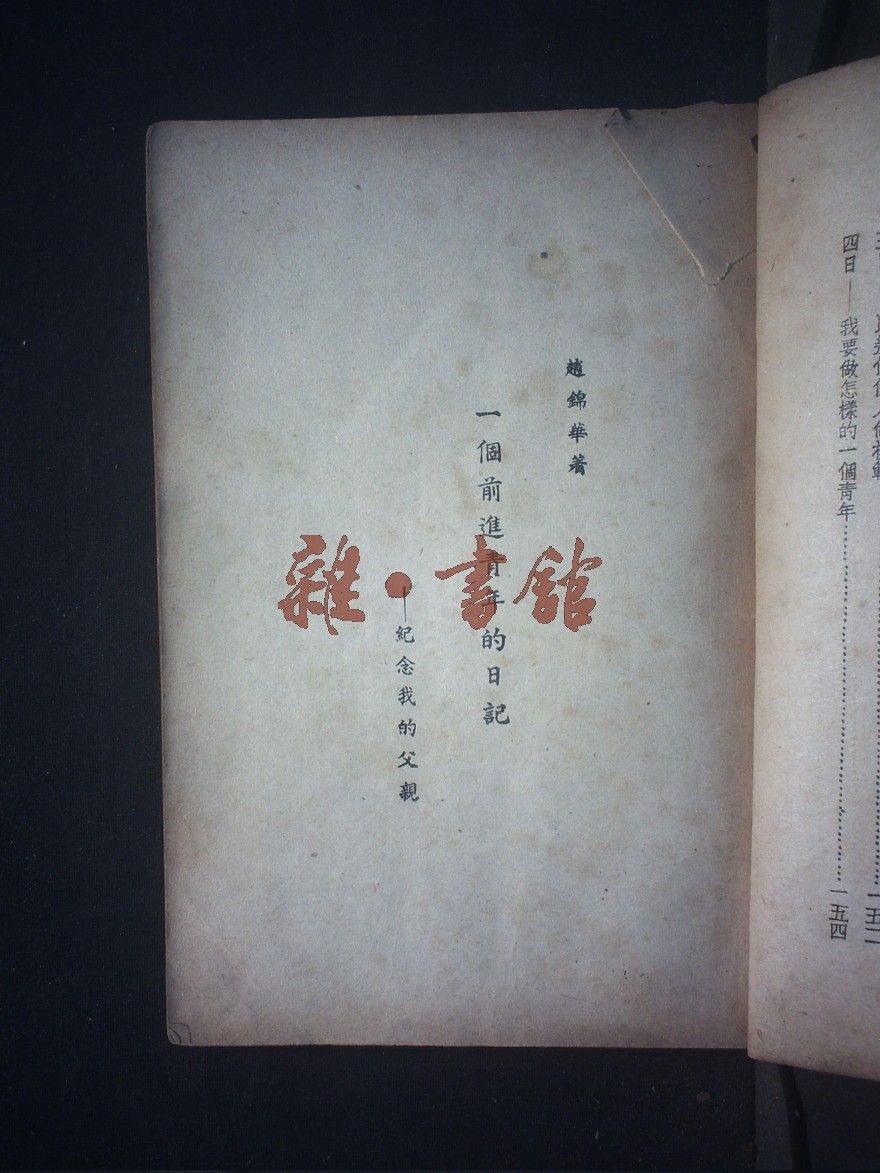 四日——我要做怎樣的一個青年……一五四
趙錦華著
一個前進青年的日記
——紀念我的父親
雜·書館